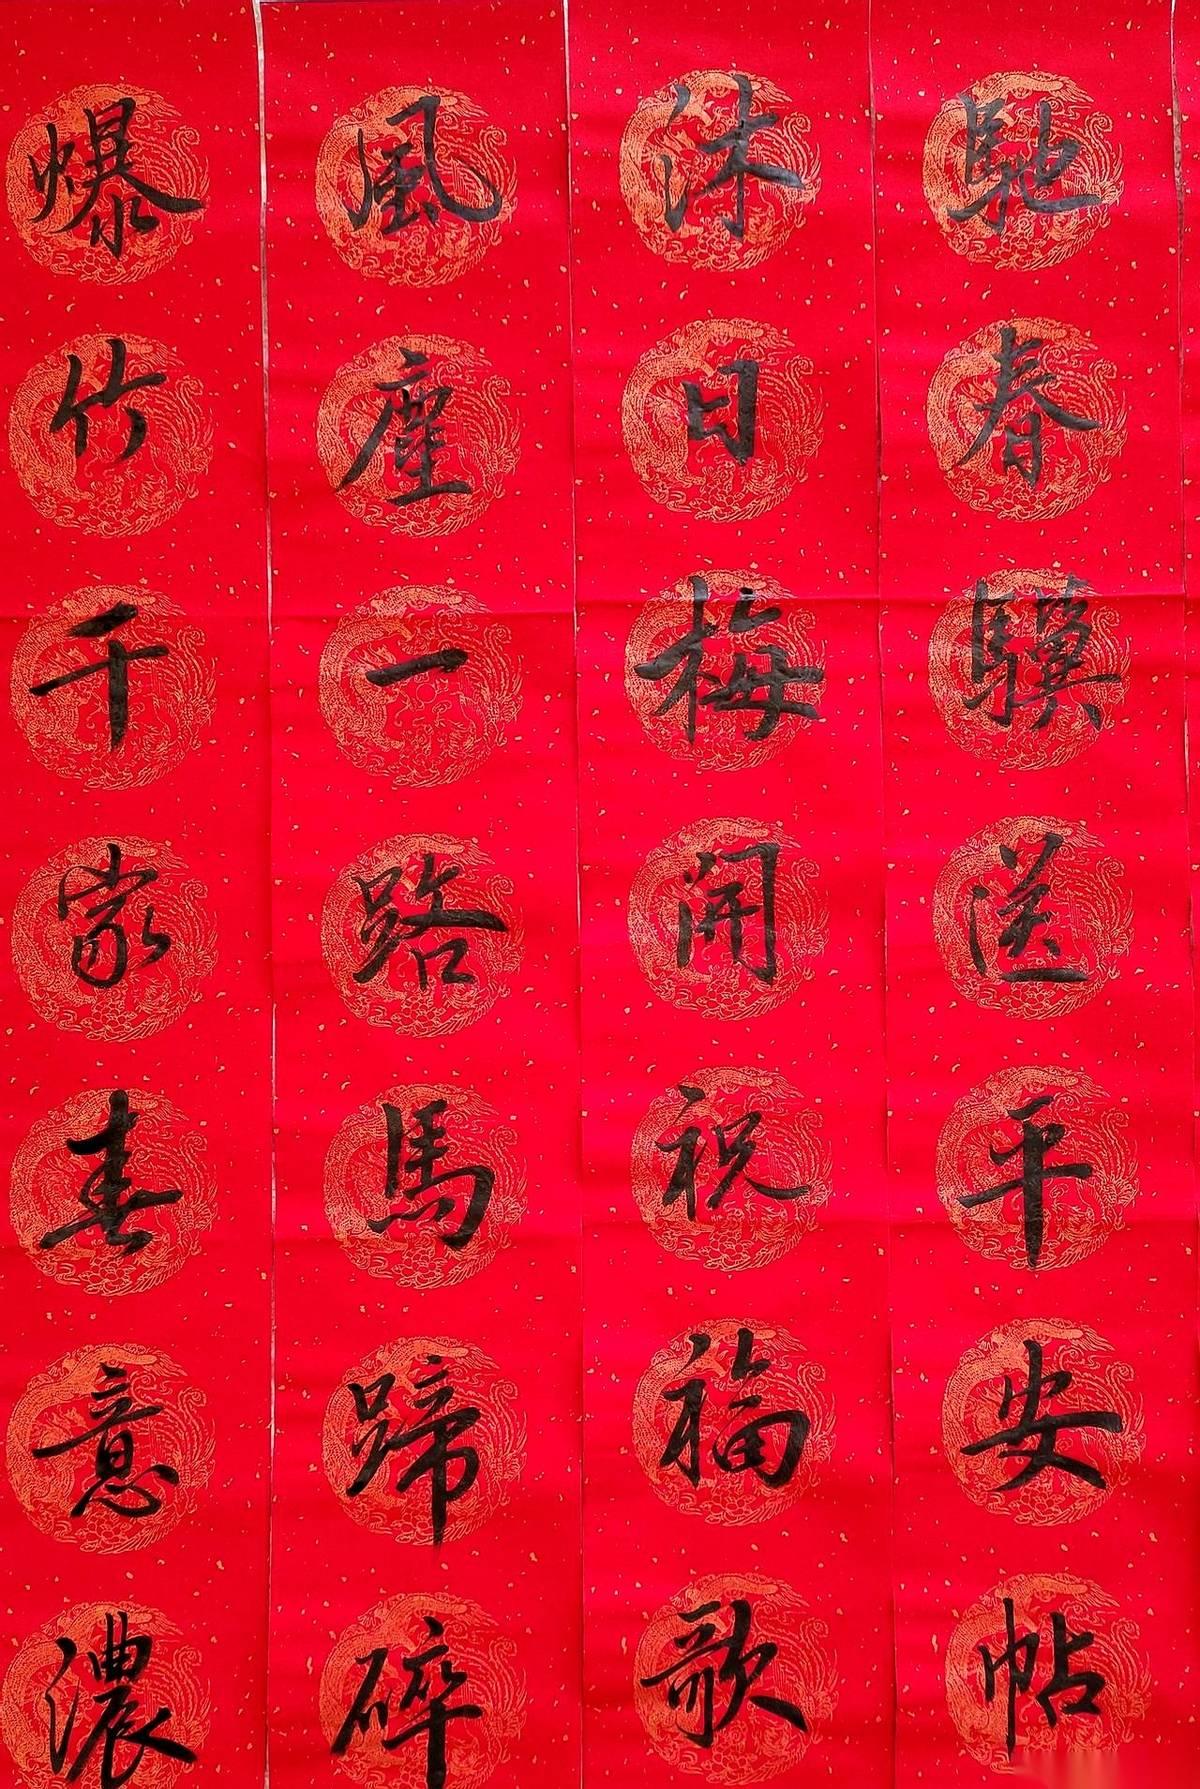 馳春驥送平安帖
沐日梅開祝福歌
風塵一路馬蹄碎
爆竹千家春意濃